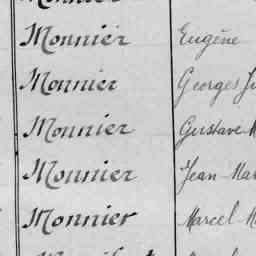 Monnier Eugène
Monnier Georges
Monnier Gustave
Monnier Jean-Mar
Monnier Marcel